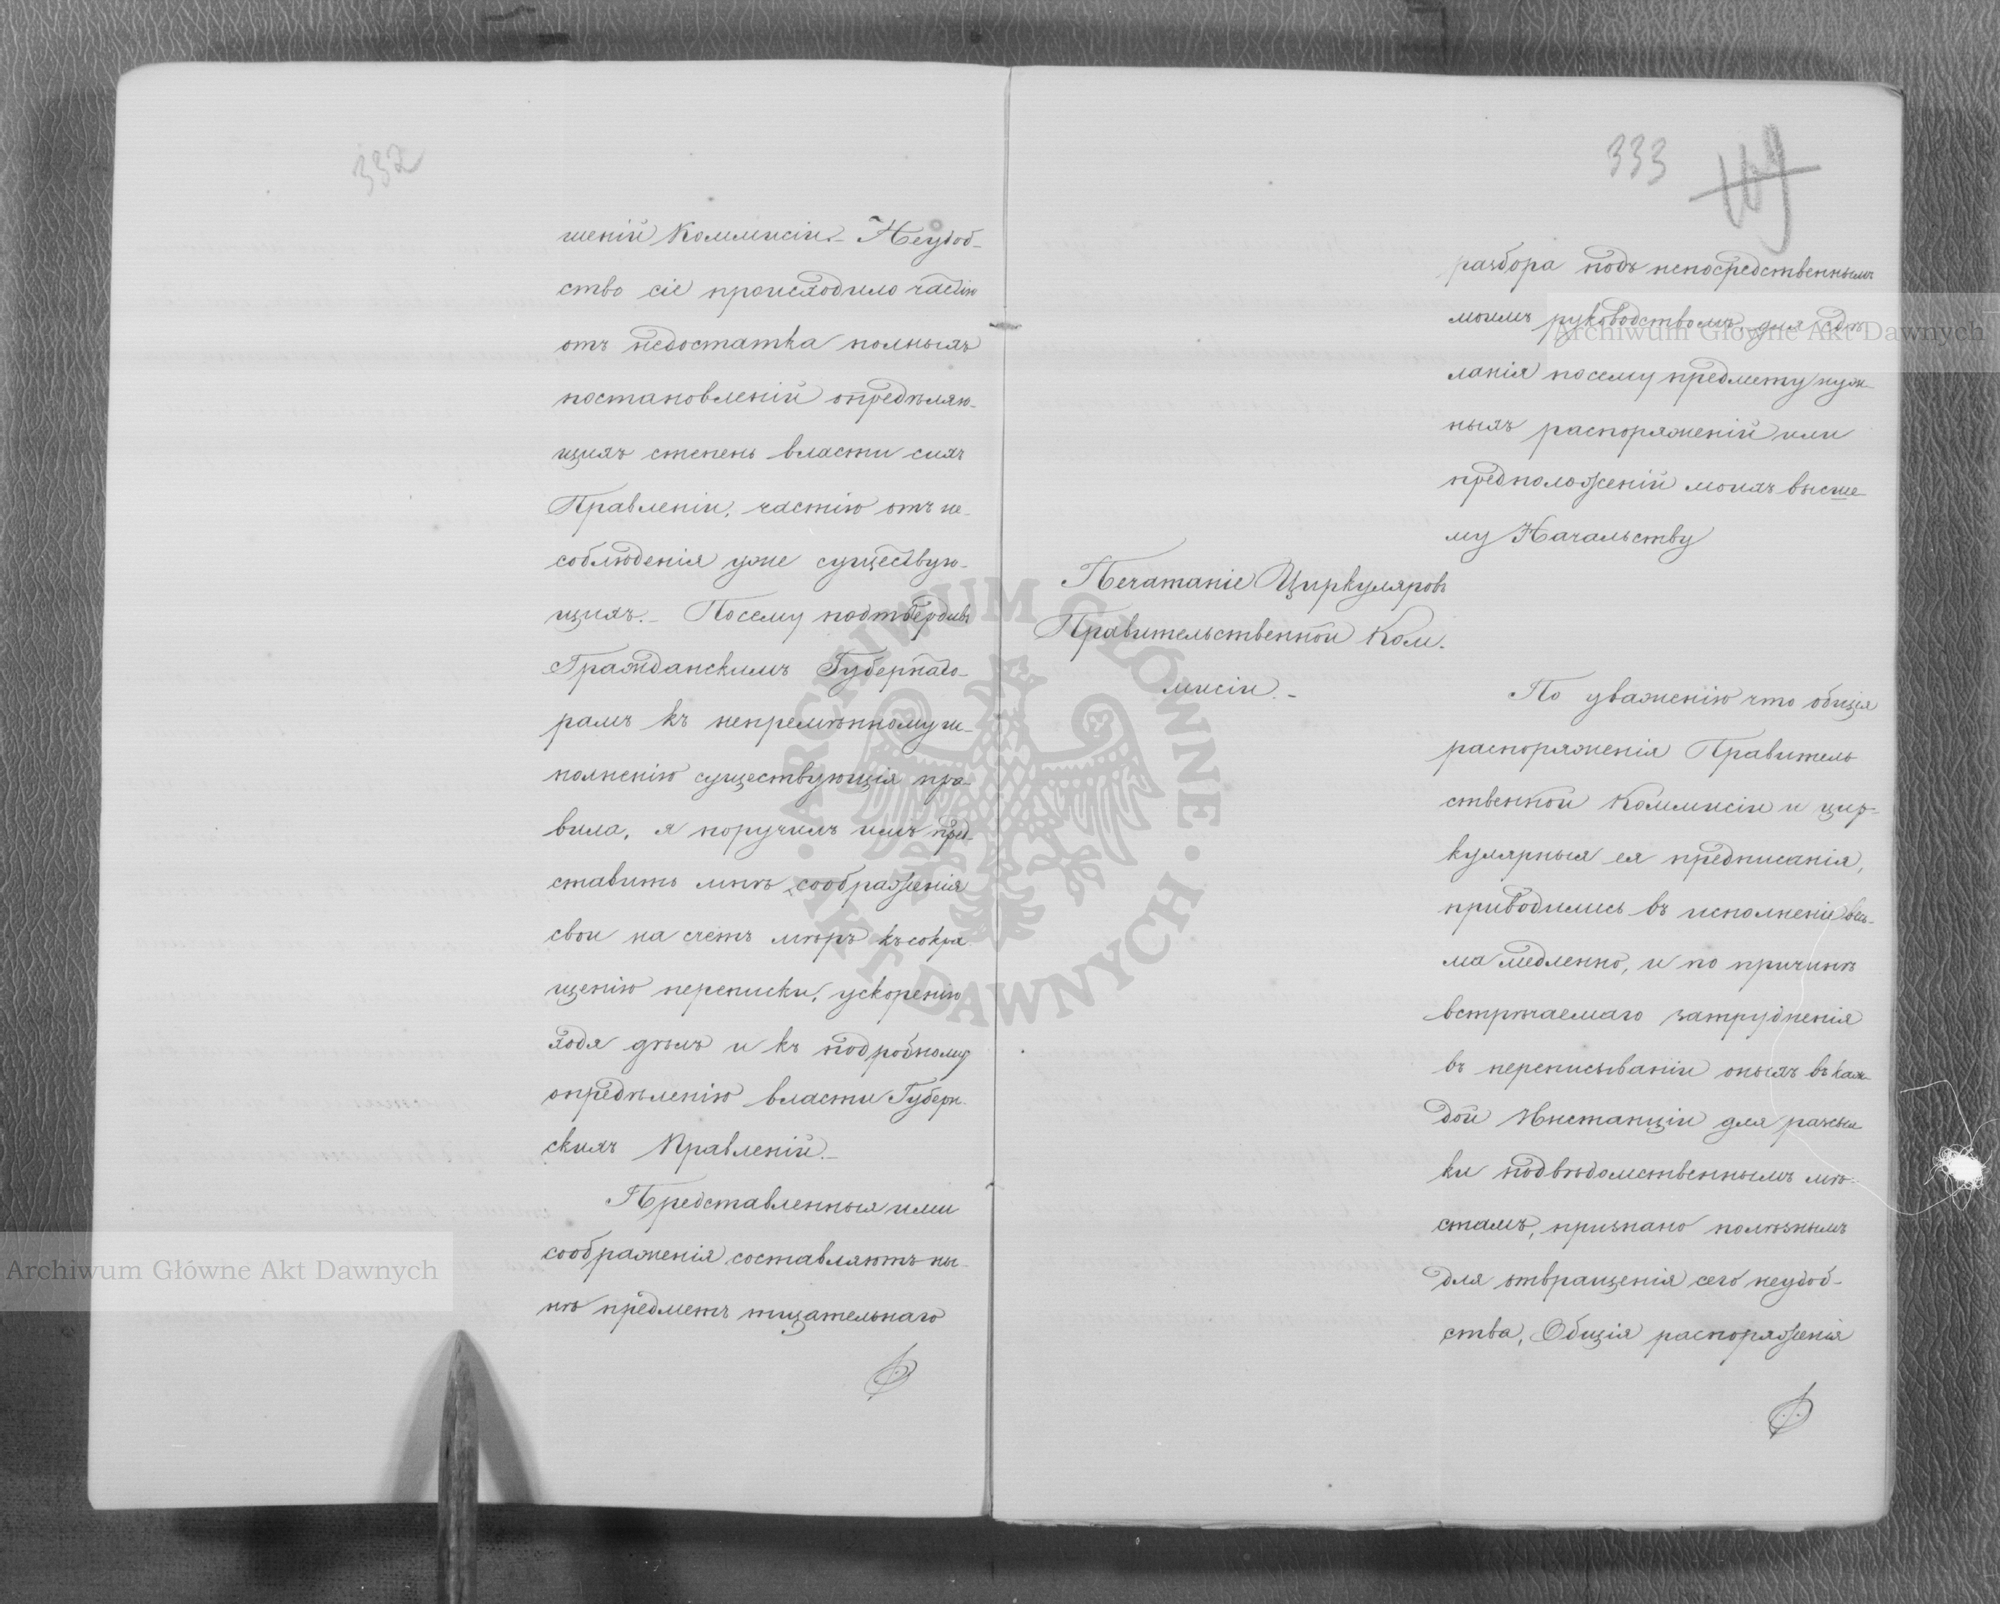 332
шеній Коммисіи. – Неудоб-
ство сіе происходило частію
отъ недостатка полныхъ
постановленій опредѣляю-
щихъ степень власти сихъ
Правленіи, частію отъ не-
соблюденія уже существую-
щихъ. – Посему подтвердивъ
Гражданскимъ Губернато-
рамъ къ непремѣнному ис-
полненію существующія пра-
вила, я поручилъ имъ пред-
ставить мнѣ соображенія
свои на счетъ мѣръ къ сокра
щенію переписки, ускоренію
хода дѣлъ и къ подробному
опредѣленію власти Губерн-
скихъ Правленій. –
Представленныя ими
соображенія составляютъ ны-
нѣ предметъ тщательнаго
333
разбора подъ непосредственнымъ
моимъ руководствомъ, для сдѣ
ланія по сему предмету нуж-
ныхъ распоряженій или
предположеній моихъ высше
му Начальству
Печатаніе Циркуляровъ
Правительственной Ком-
мисіи. –
По уваженію что общія
распоряженія Правитель
ственной Коммисіи и цир-
кулярныя ея предписанія,
приводились въ исполненіе весь-
ма медленно, и по причинѣ
встрѣчаемаго затрудненія
въ переписываніи оныхъ въ каж-
дой Инстанціи для разсыл
ки подвѣдомственнымъ мѣ-
стамъ, признано полезнымъ
для отвращенія сего неудоб-
ства, Общія распоряженія
Archiwum Główne Akt Dawnych
Archiwum Główne Akt Dawnych
ARCHIWUM GŁÓWNE AKT DAWNYCH